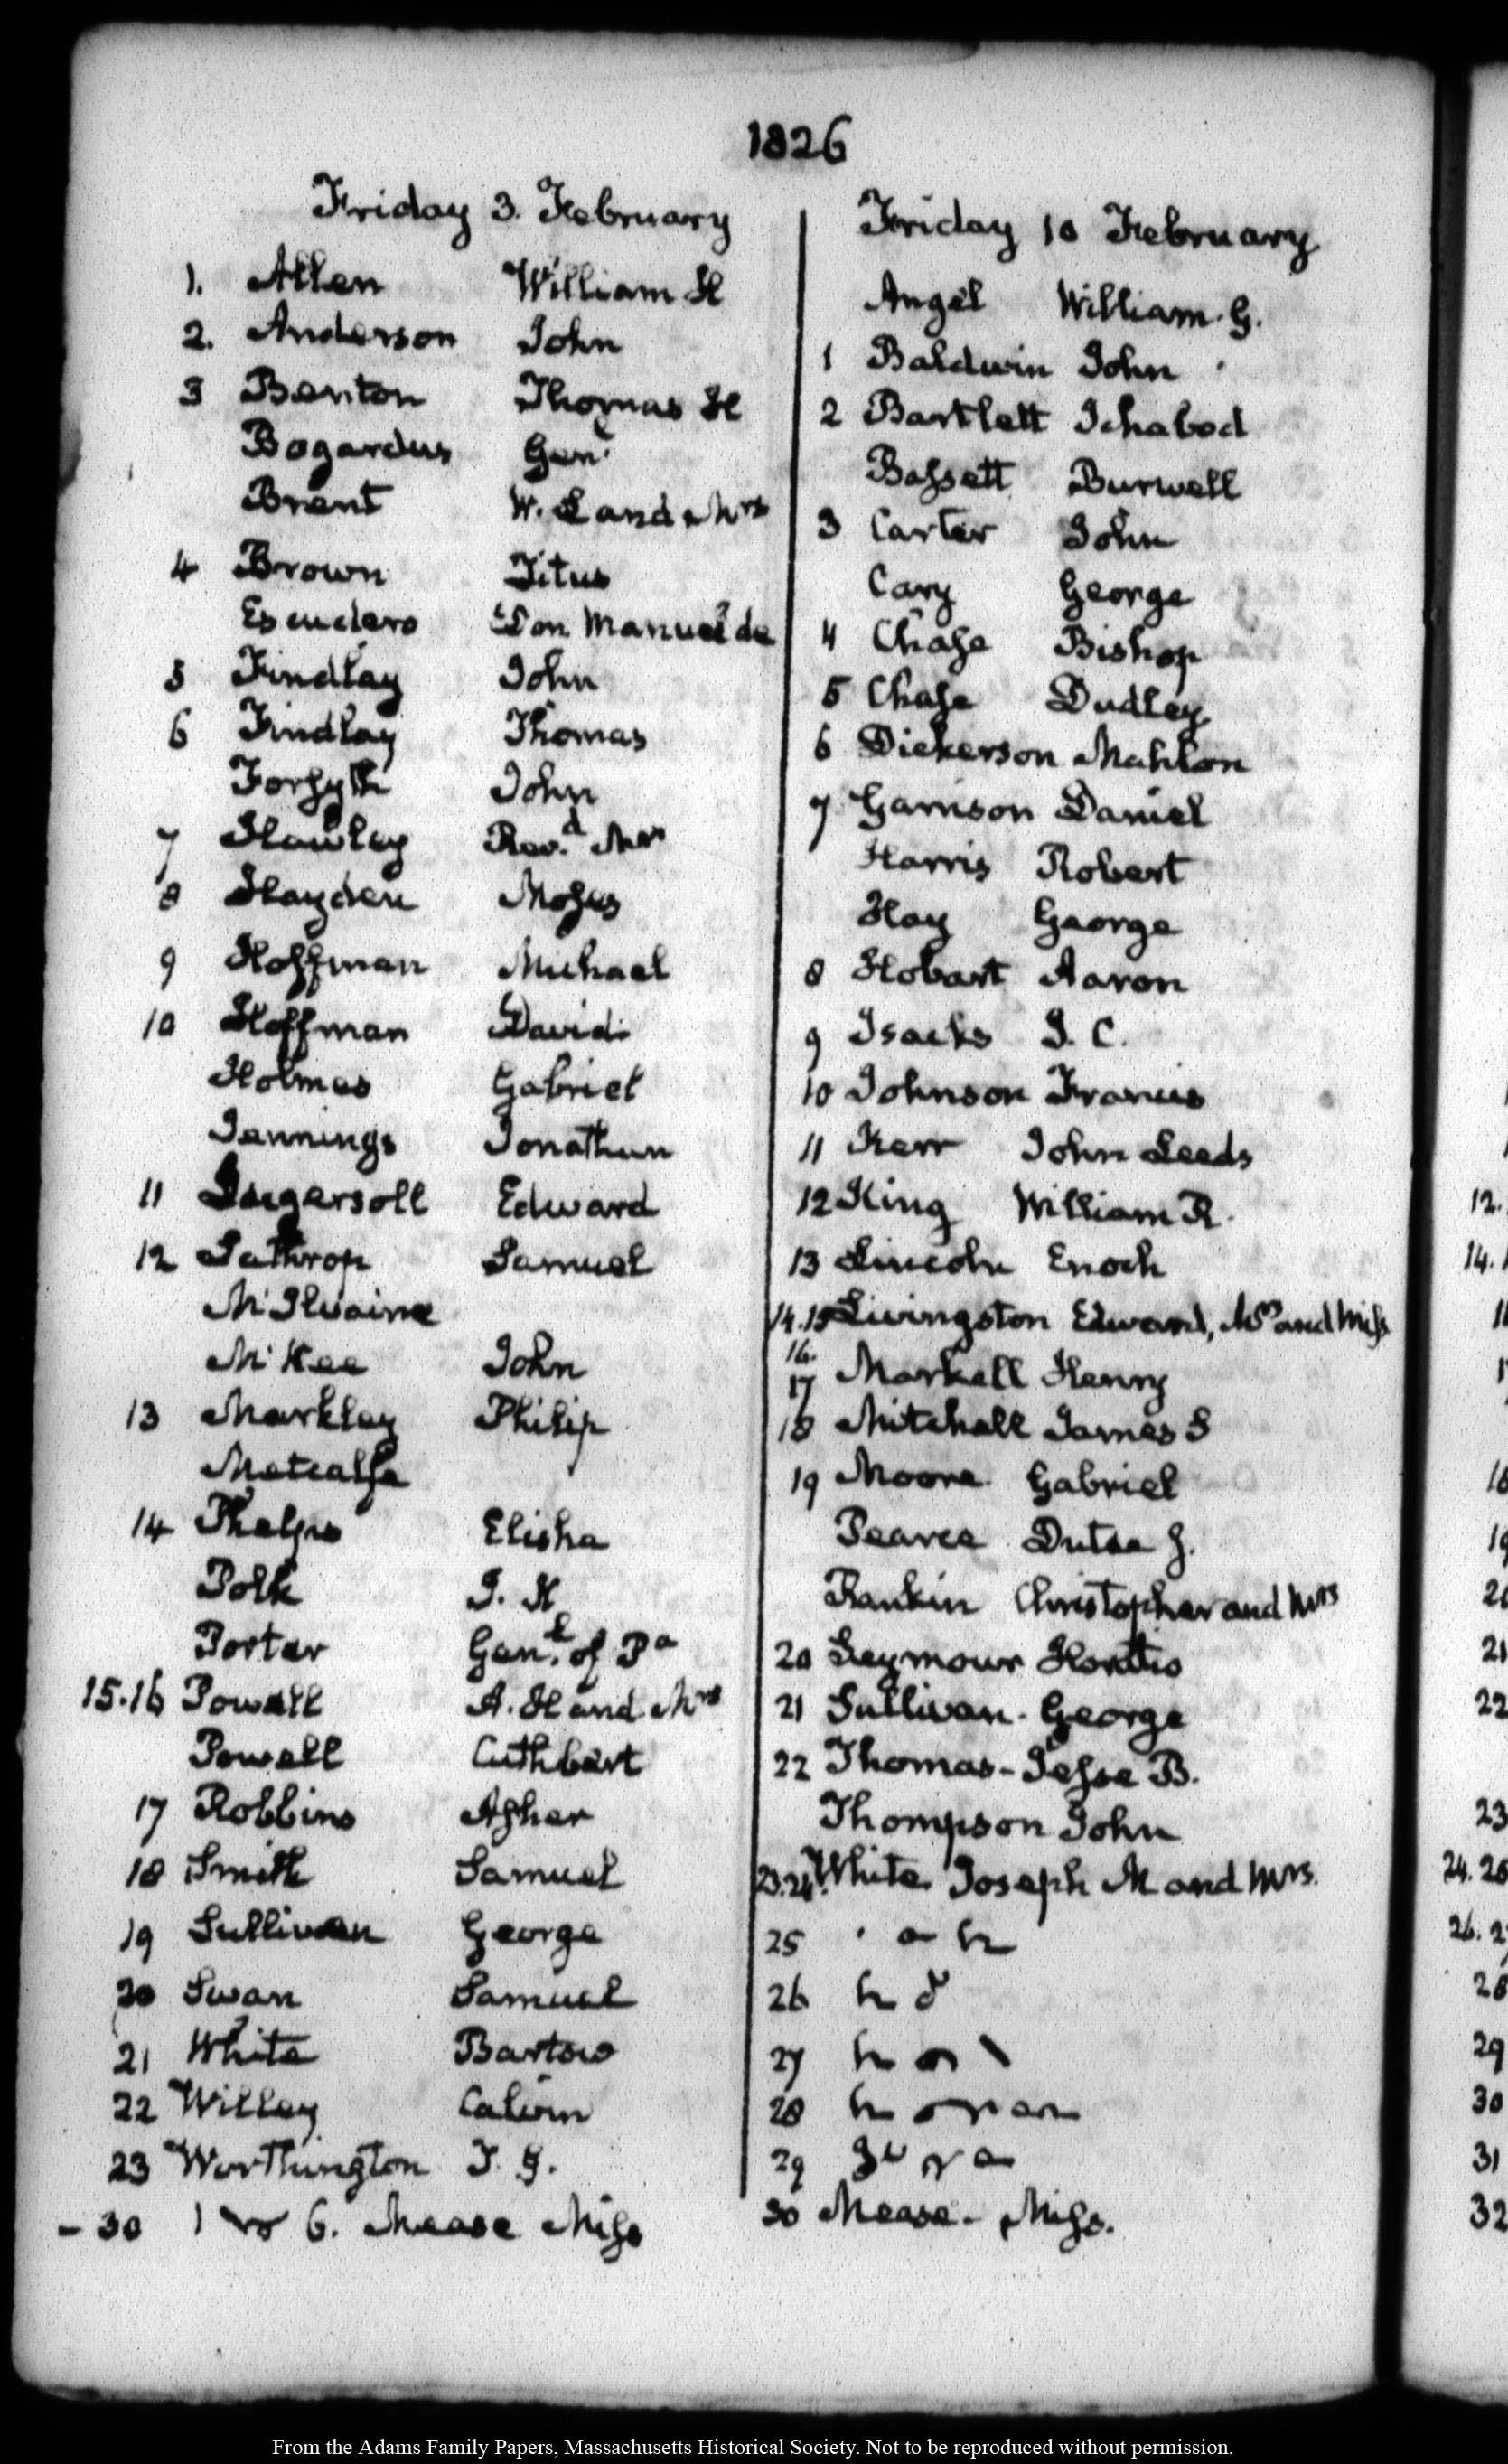 1826
Friday 3. February
1. Allen William H
2. Anderson John
3 Benton Thomas H
Bogardus Genl
Brent W. L and Mrs
4 Brown Titus
Escudero Don Manuel de
5 Findlay John
6 Findlay Thomas
Forsyth John
7 Hawley Revd. Mr
8 Hayden Moses
9 Hoffman Michael
10 Hoffman David
Holmes Gabriel
Jennings Jonathan
11 Ingersoll Edward
12 Lathrop Samuel
McIlvaine
McKee John
13 Markley Philip
Metcalfe
14 Phelps Elisha
Polk J. K
Porter Genl. of Pa
15.16 Powell A. H and Mrs
Powell Cuthbert
17 Robbins Asher
18 Smith Samuel
19 Sullivan George
20 Swan Samuel
21 White Bartow
22 Willey Calvin
23 Worthington T. G.
- 30 6. Mease Miss
Friday 10 February
Angel William. G.
1 Baldwin John
2 Bartlett Ichabod
Bassett Burwell
3 Carter John
Cary George
4 Chase Bishop
5 Chase Dudley
6 Dickerson Mahlon
7 Garrison Daniel
Harris Robert
Hay George
8 Hobart Aaron
9 Isacks J. C.
10 Johnson Francis
11 Kerr John Leeds
12 King William R.
13 Lincoln Enoch
14.15 Livingston Edward, Mrs and Miss
16.
17 Markell Henry
18 Mitchell James S
19 Moore Gabriel
Pearce Dutee J.
Rankin Christopher and Mrs
20 Seymour Horatio
21 Sullivan. George
22 Thomas - Jesse B.
Thompson John
23.24. White Joseph M and Mrs.
25
26
27
28
29
30 Mease - Miss.
12.
14.
18
19
21
22
23
24. 25
26. 2
28
29
30
31
32
From the Adams Family Papers, Massachusetts Historical Society. Not to be reproduced without permission.